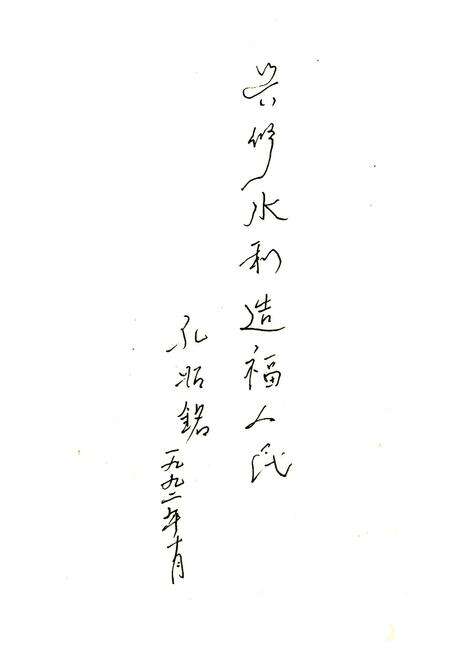 兴修水利造福人民
孔昭銘
一九九二年十月